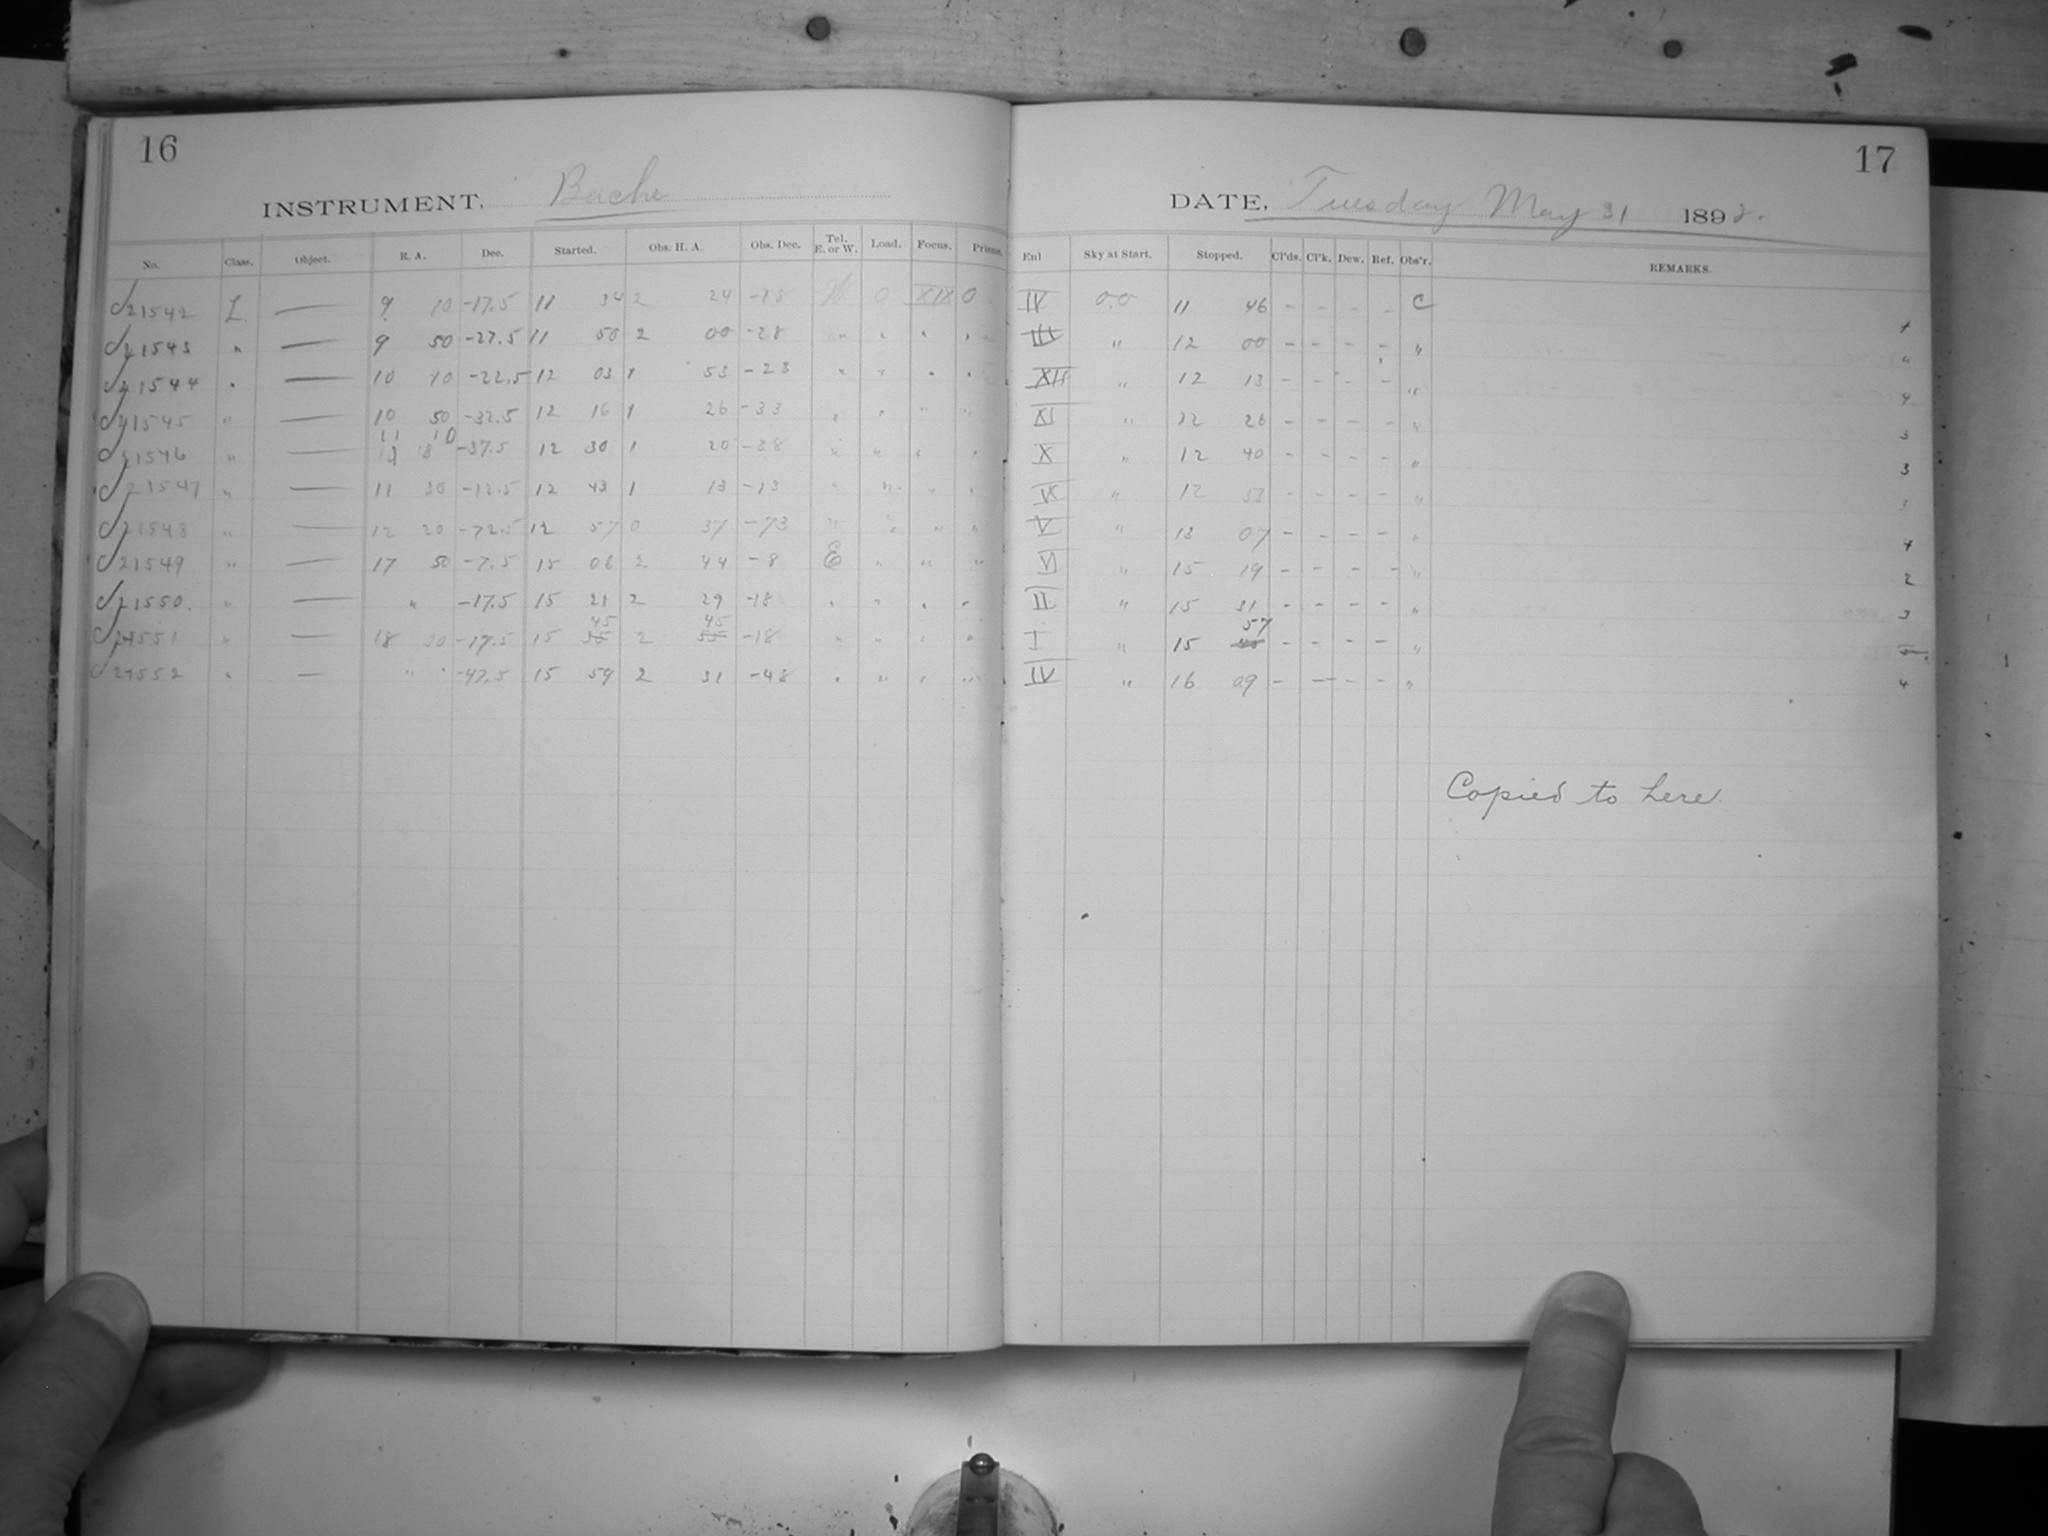 16
INSTRUMENT. Bache
No. Class. Object. R. A. Dec. Started. Obs. H. A. Obs. Dec. Tel. E. or W. Load. Focus. Prisms.
21542 L — 9 10 -17.5 11 34 2 24 -18 0 XIX 0
21543 " — 9 50 -27.5 11 50 2 00 -28 " " " "
21544 " — 10 10 -22.5 12 03 1 53 -23 " " " "
21545 " — 10 50 -32.5 12 16 1 26 -33 " " " "
21546 " — 11 10 -37.5 12 30 1 20 -38 " " " "
21547 " — 11 30 -12.5 12 43 1 13 -13 " " " "
21548 " — 12 20 -72.5 12 57 0 37 -73 " " " "
21549 " — 17 50 -7.5 15 06 2 44 -8 E " " "
21550 " — " -17.5 15 21 2 29 -18 " " " "
21551 " — 18 30 -17.5 15 45 2 45 -18 " " " "
21552 " — " " -47.5 15 59 2 31 -48 " " " "
17
DATE, Tuesday May 31 1892.
Enl Sky at Start. Stopped. Cl'ds. Cl'k. Dew. Ref. Obs'r. REMARKS.
IV 0.0 11 46 - - - - C
III " 12 00 - - - - "
XII " 12 13 - - - - " 4
XI " 12 26 - - - - " 3
X " 12 40 - - - - " 3
IX " 12 53 - - - - " 3
V " 13 07 - - - - "
VI " 15 19 - - - - " 2
II " 15 31 - - - - " 3
I " 15 57 - - - - " 5
IV " 16 09 - - - - " 4
Copied to here